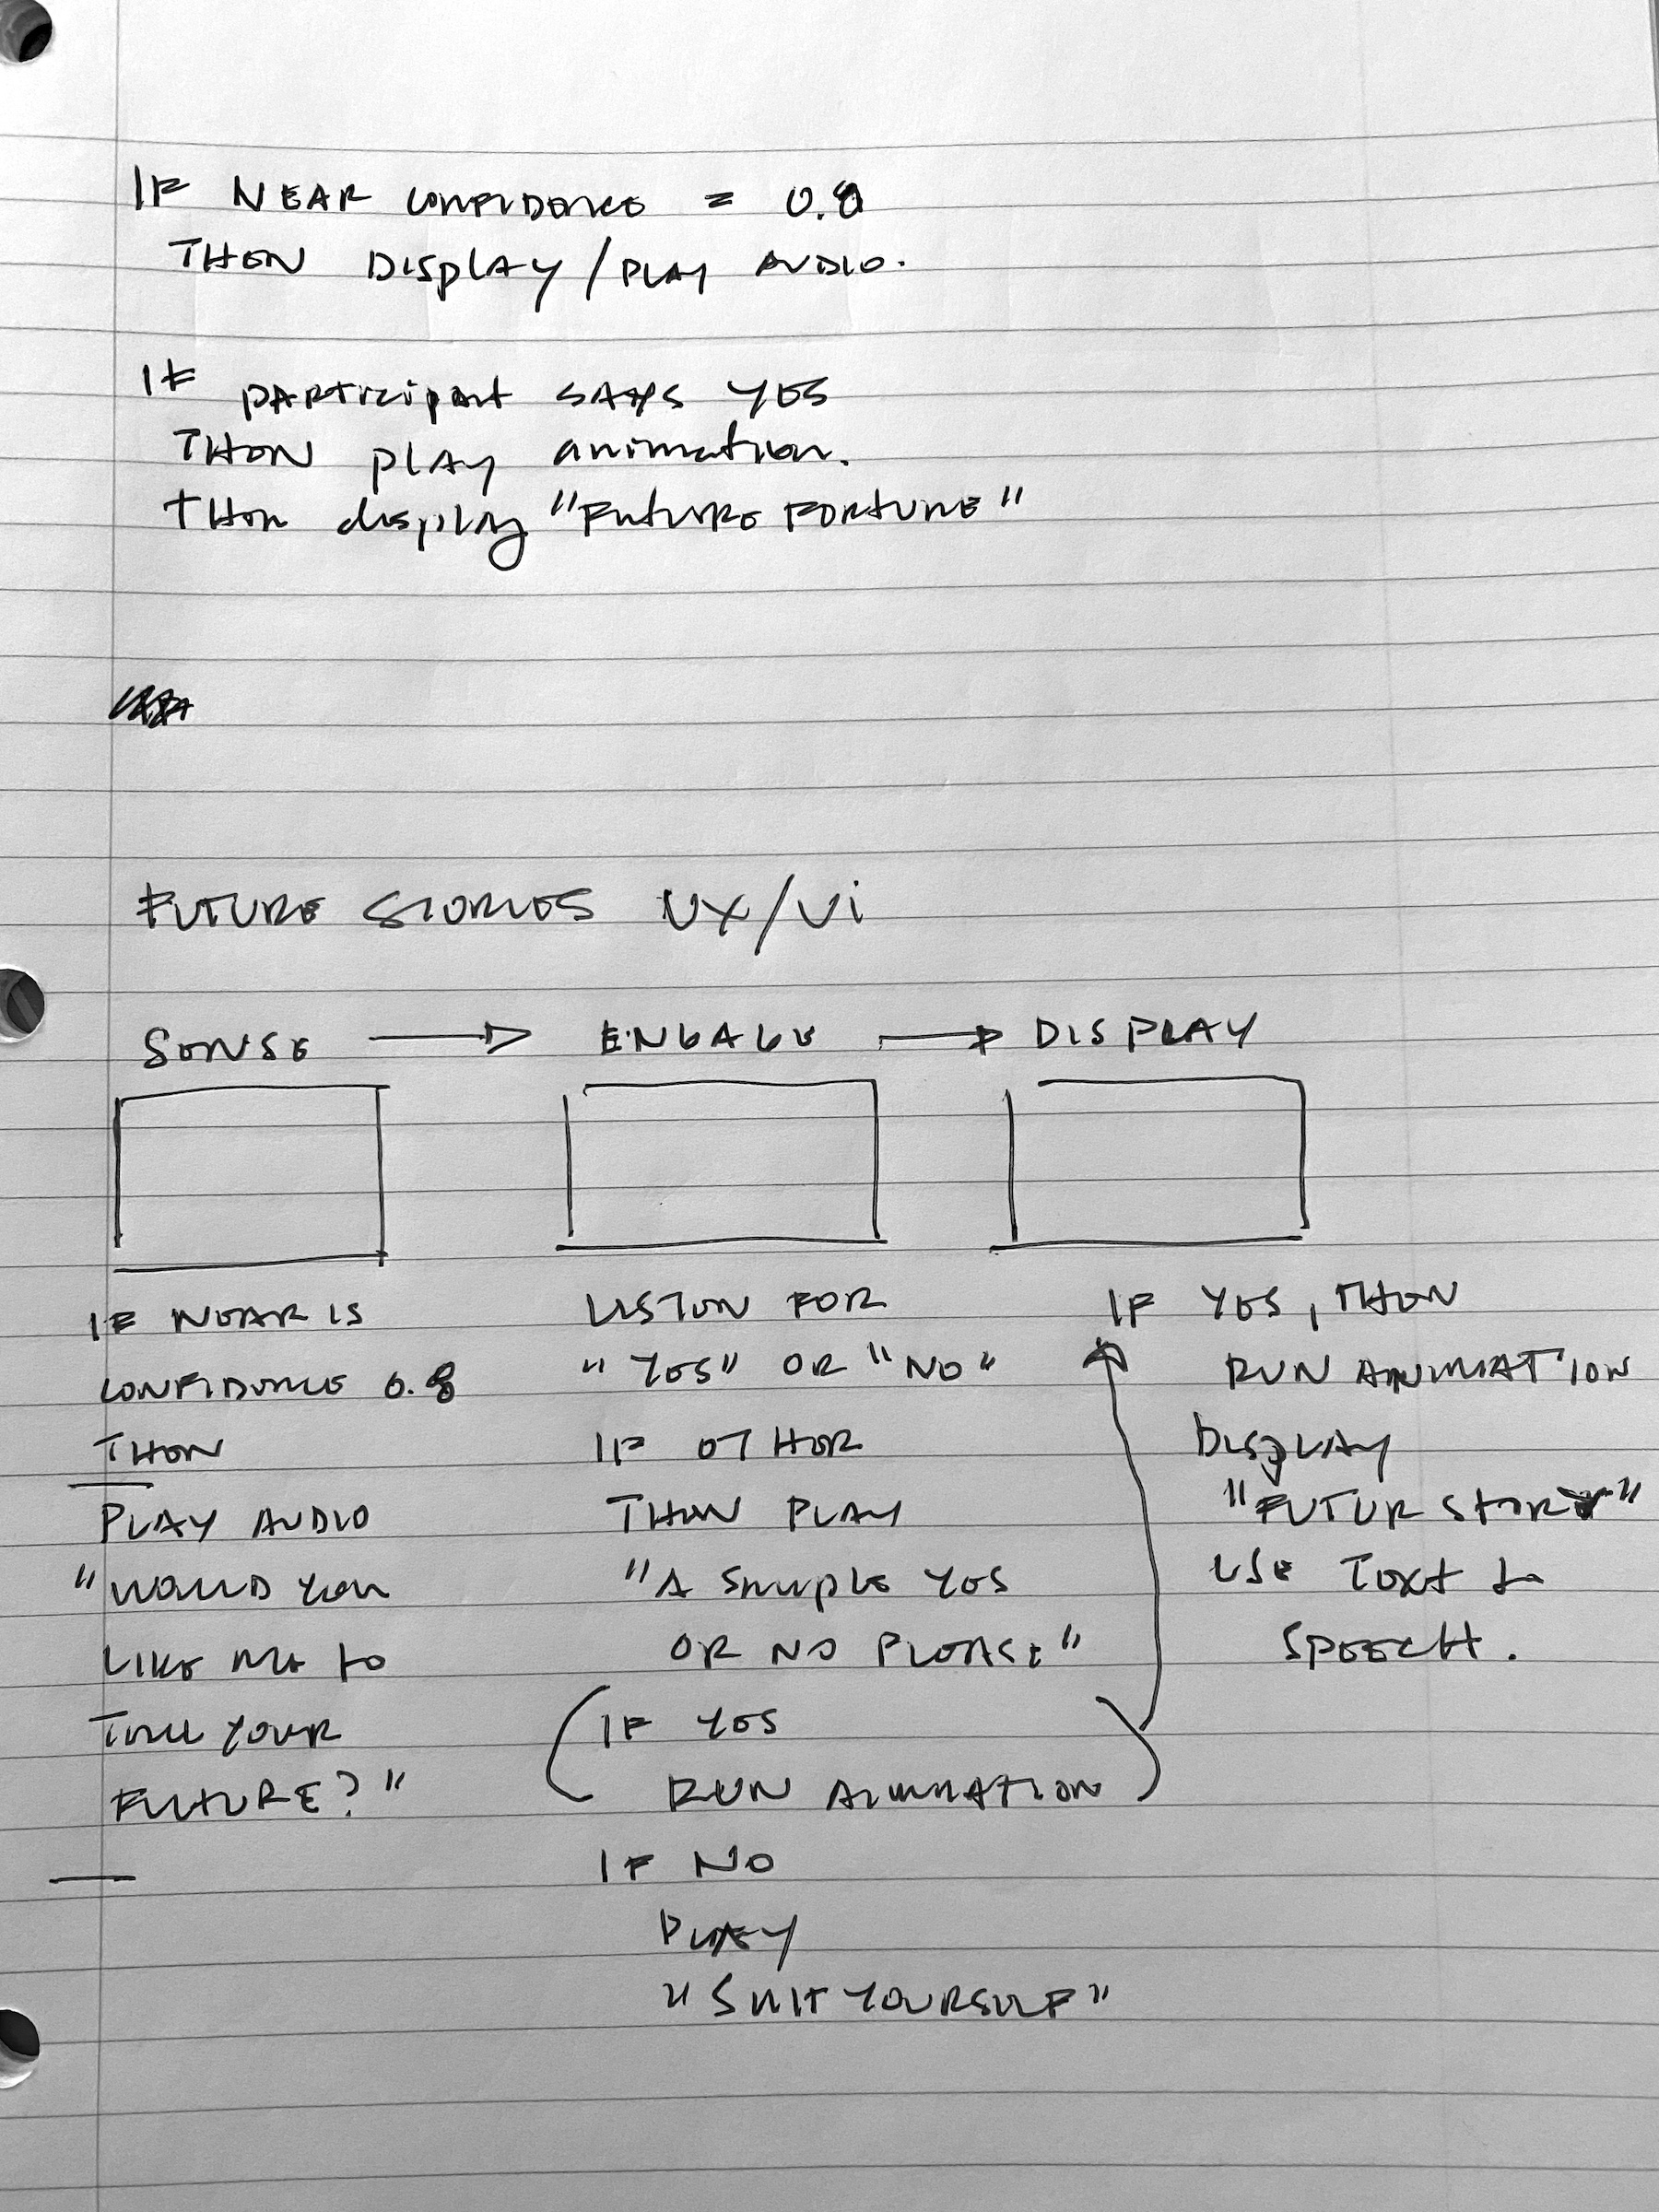 IF NEAR CONFIDENCE = 0.8
THEN DISPLAY/PLAY AUDIO.
IF PARTICIPANT SAYS YES
THEN PLAY animation.
THEN display "FUTURE FORTUNE"
FUTURE STORIES UX/Ui
SENSE → ENGAGE → DISPLAY
IF NEAR IS
CONFIDENCE 0.8
THEN
PLAY AUDIO
"WOULD YOU
LIKE ME to
TELL YOUR
FUTURE?"
LISTEN FOR
"YES" OR "NO"
IF OTHER
THEN PLAY
"A SIMPLE YES
OR NO PLEASE"
(IF YES
RUN ANIMATION)
IF NO
PLAY
"SUIT YOURSELF"
IF YES, THEN
RUN ANIMATION
DISPLAY
"FUTUR STORY"
USE TEXT to
SPEECH.